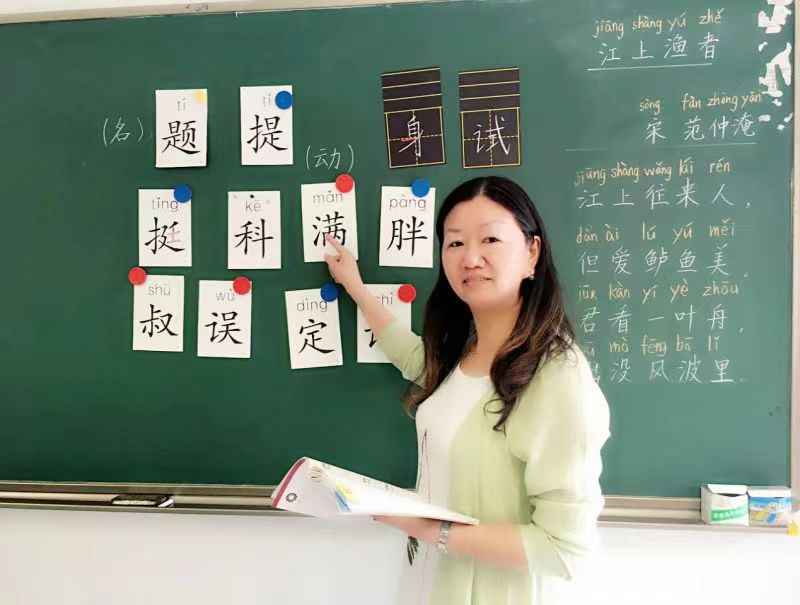 tí tí
(名) 题 提
身 试
(动)
tǐng kē mǎn pàng
挺 科 满 胖
shū wù dìng
叔 误 定
jiāng shàng yú zhě
江上渔者
sòng fàn zhòng yān
宋 范仲淹
jiāng shàng wǎng lái rén
江上往来人,
dàn ài lú yú měi
但爱鲈鱼美。
jūn kàn yí yè zhōu
君看一叶舟,
mò fēng bō lǐ
没风波里。